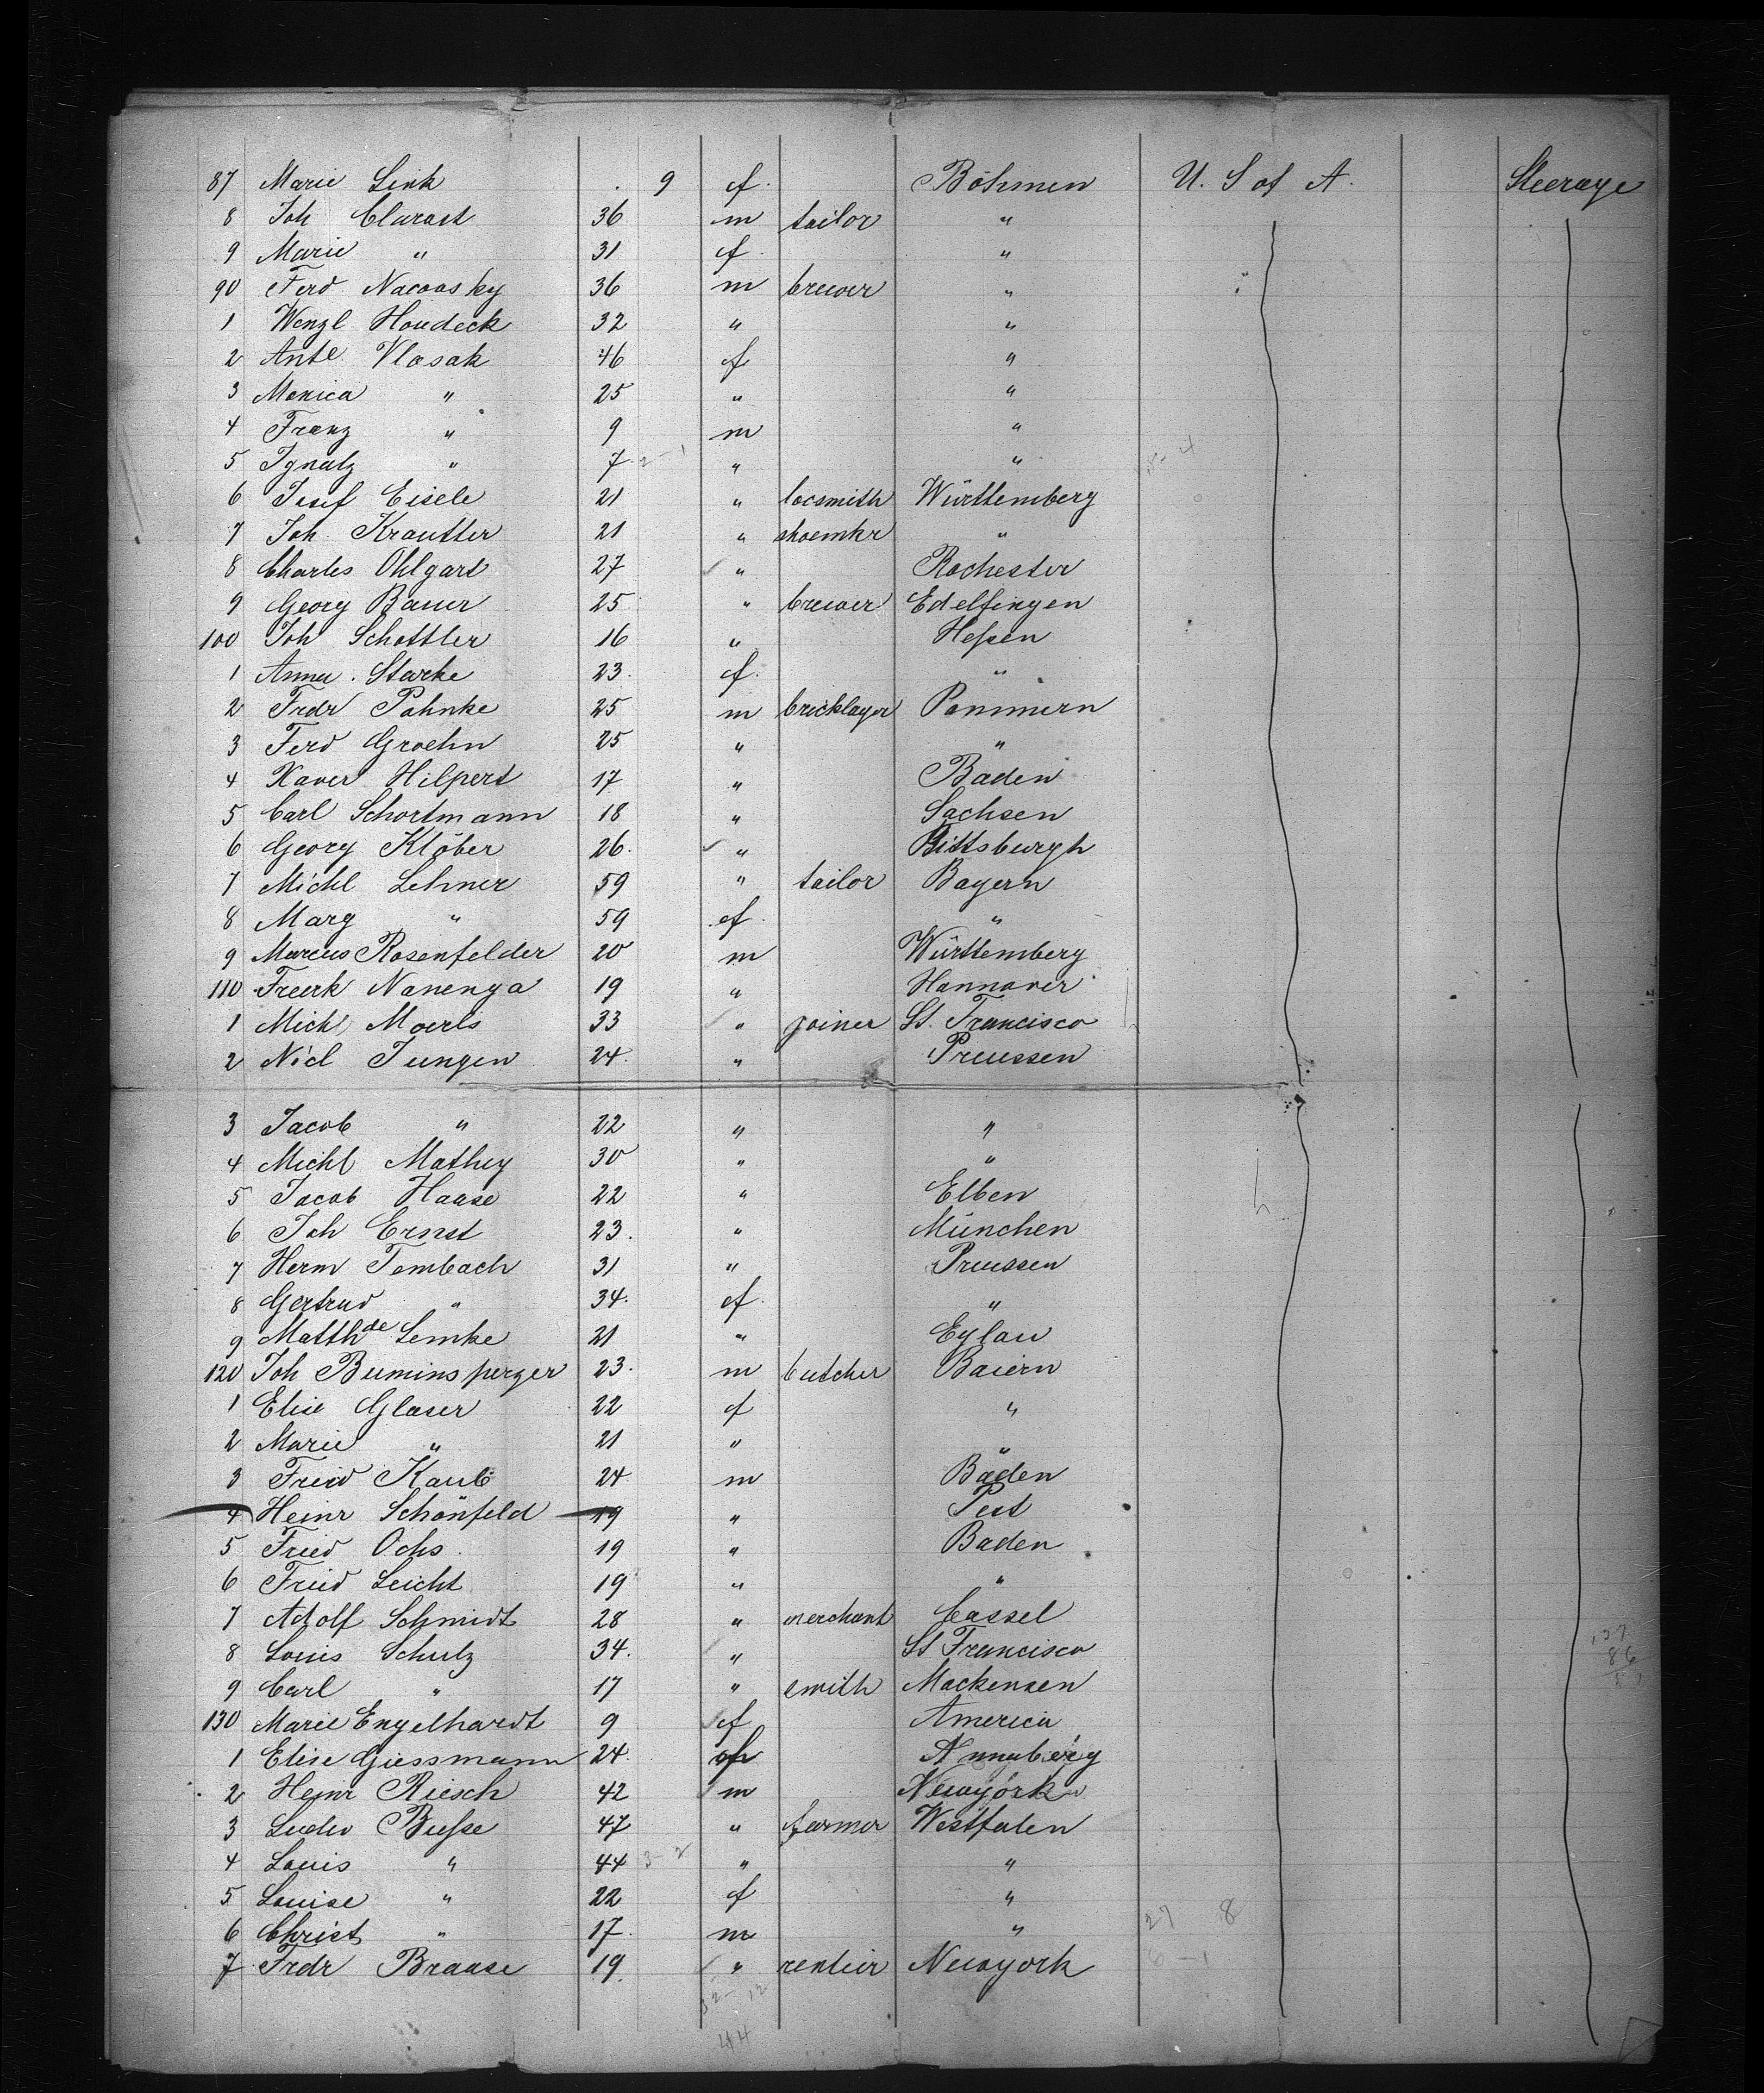 87 Marie Link 9 f. Böhmen U. S of A. Steerage
8 Joh Clarast 36 m tailor "
9 Marie " 31 f. "
90 Ferd Nacovsky 36 m brewer "
1 Wenzl Houdeck 32 " "
2 Ante Vlasak 46 f "
3 Monica " 25 " "
4 Franz " 9 m "
5 Ignatz " 7 2-1 " "
6 Josef Eisele 21 " locsmith Württemberg
7 Joh. Krautter 21 " shoemkr "
8 Charles Ohlgart 27 " Rochester
9 Georg Bauer 25 " brewer Edelfingen
100 Joh Schottler 16 " Hessen
1 Anna Starke 23. f. "
2 Frdr Pahnke 25 m bricklayer Pommern
3 Ferd Groehn 25 " "
4 Xaver Hilpert 17 " Baden
5 Carl Schortmann 18 " Sachsen
6 Georg Klöber 26. " Pittsburgh
7 Michl Lehner 59 " tailor Bayern
8 Marg " 59 f. "
9 Marcus Rosenfelder 20 m Württemberg
110 Freerk Nanenga 19 " Hannover
1 Michl Moerls 33 " joiner St. Francisco
2 Nicl Jungen 24. " Preussen
3 Jacob " 22 " "
4 Michl Mathey 30 " "
5 Jacob Haase 22 " Elben
6 Joh Ernst 23. " München
7 Herm Tembach 31 " Preussen
8 Gertrud " 34. f. "
9 Matthde Lemke 21 " Eylau
120 Joh Buminsperger 23. m butcher Baiern
1 Elise Glaser 22 f "
2 Marie " 21 " "
3 Fried Kaub 24 m Baden
4 Heinr Schönfeld 19 " Pest
5 Fried Ochs 19 " Baden
6 Fried Leicht 19 " "
7 Adolf Schmidt 28 " merchant Cassel
8 Louis Schulz 34. " St Francisco
9 Carl " 17 " smith Mackensen
130 Marie Engelhardt 9 f America
1 Elise Giessmann 24. f Annaberg
2 Heinr Riesch 42 m Newyork
3 Ludw Busse 47 " farmer Westfalen
4 Louis " 44 3-2 " "
5 Louise " 22 f "
6 Christ " 17. m " 27 8
7 Frdr Braase 19. " rentier Newyork 6-1
32- 12
44